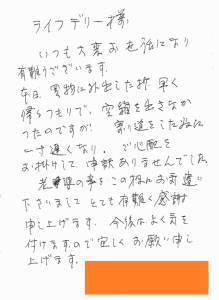 ライフデリー様
いつも大変お世話になり
有難うございます。
本日、買物に外出した折、早く
帰るつもりで、空箱を出さなか
ったのですが、寄り道をした為に
一寸遅くなり、ご心配を
お掛けして、申訳ありませんでした。
老婆の事をこの様にお気遣い
下さいまして とても有難く感謝
申し上げます。今後はよく気を
付けますので宜しくお願い申し
上げます。